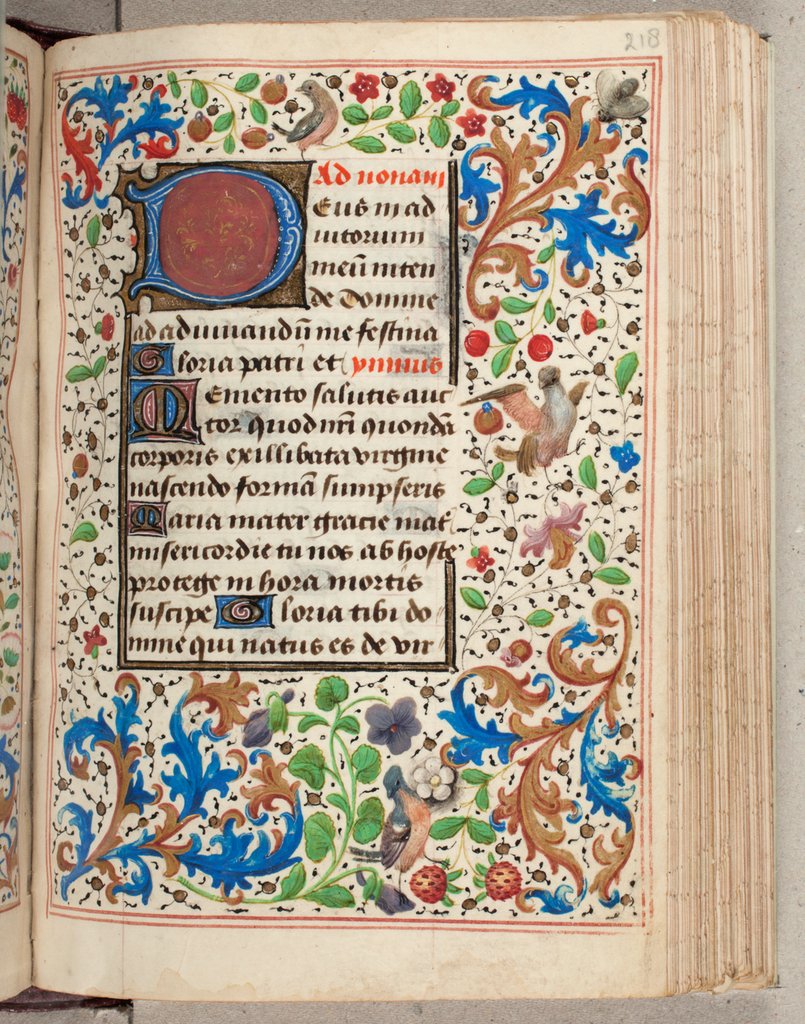 218
Ad nonam
Deus in ad
iutorium
meū inten
de Domine
ad adiuuandū me festina
Gloria patri et ymnus
Memento salutis auc
tor quod nr̄i quondā
corporis ex illibata virgine
nascendo formā sumpseris
Maria mater gracie mat̄
misericordie tu nos ab hoste
protege in hora mortis
suscipe Gloria tibi do
mine qui natus es de vir